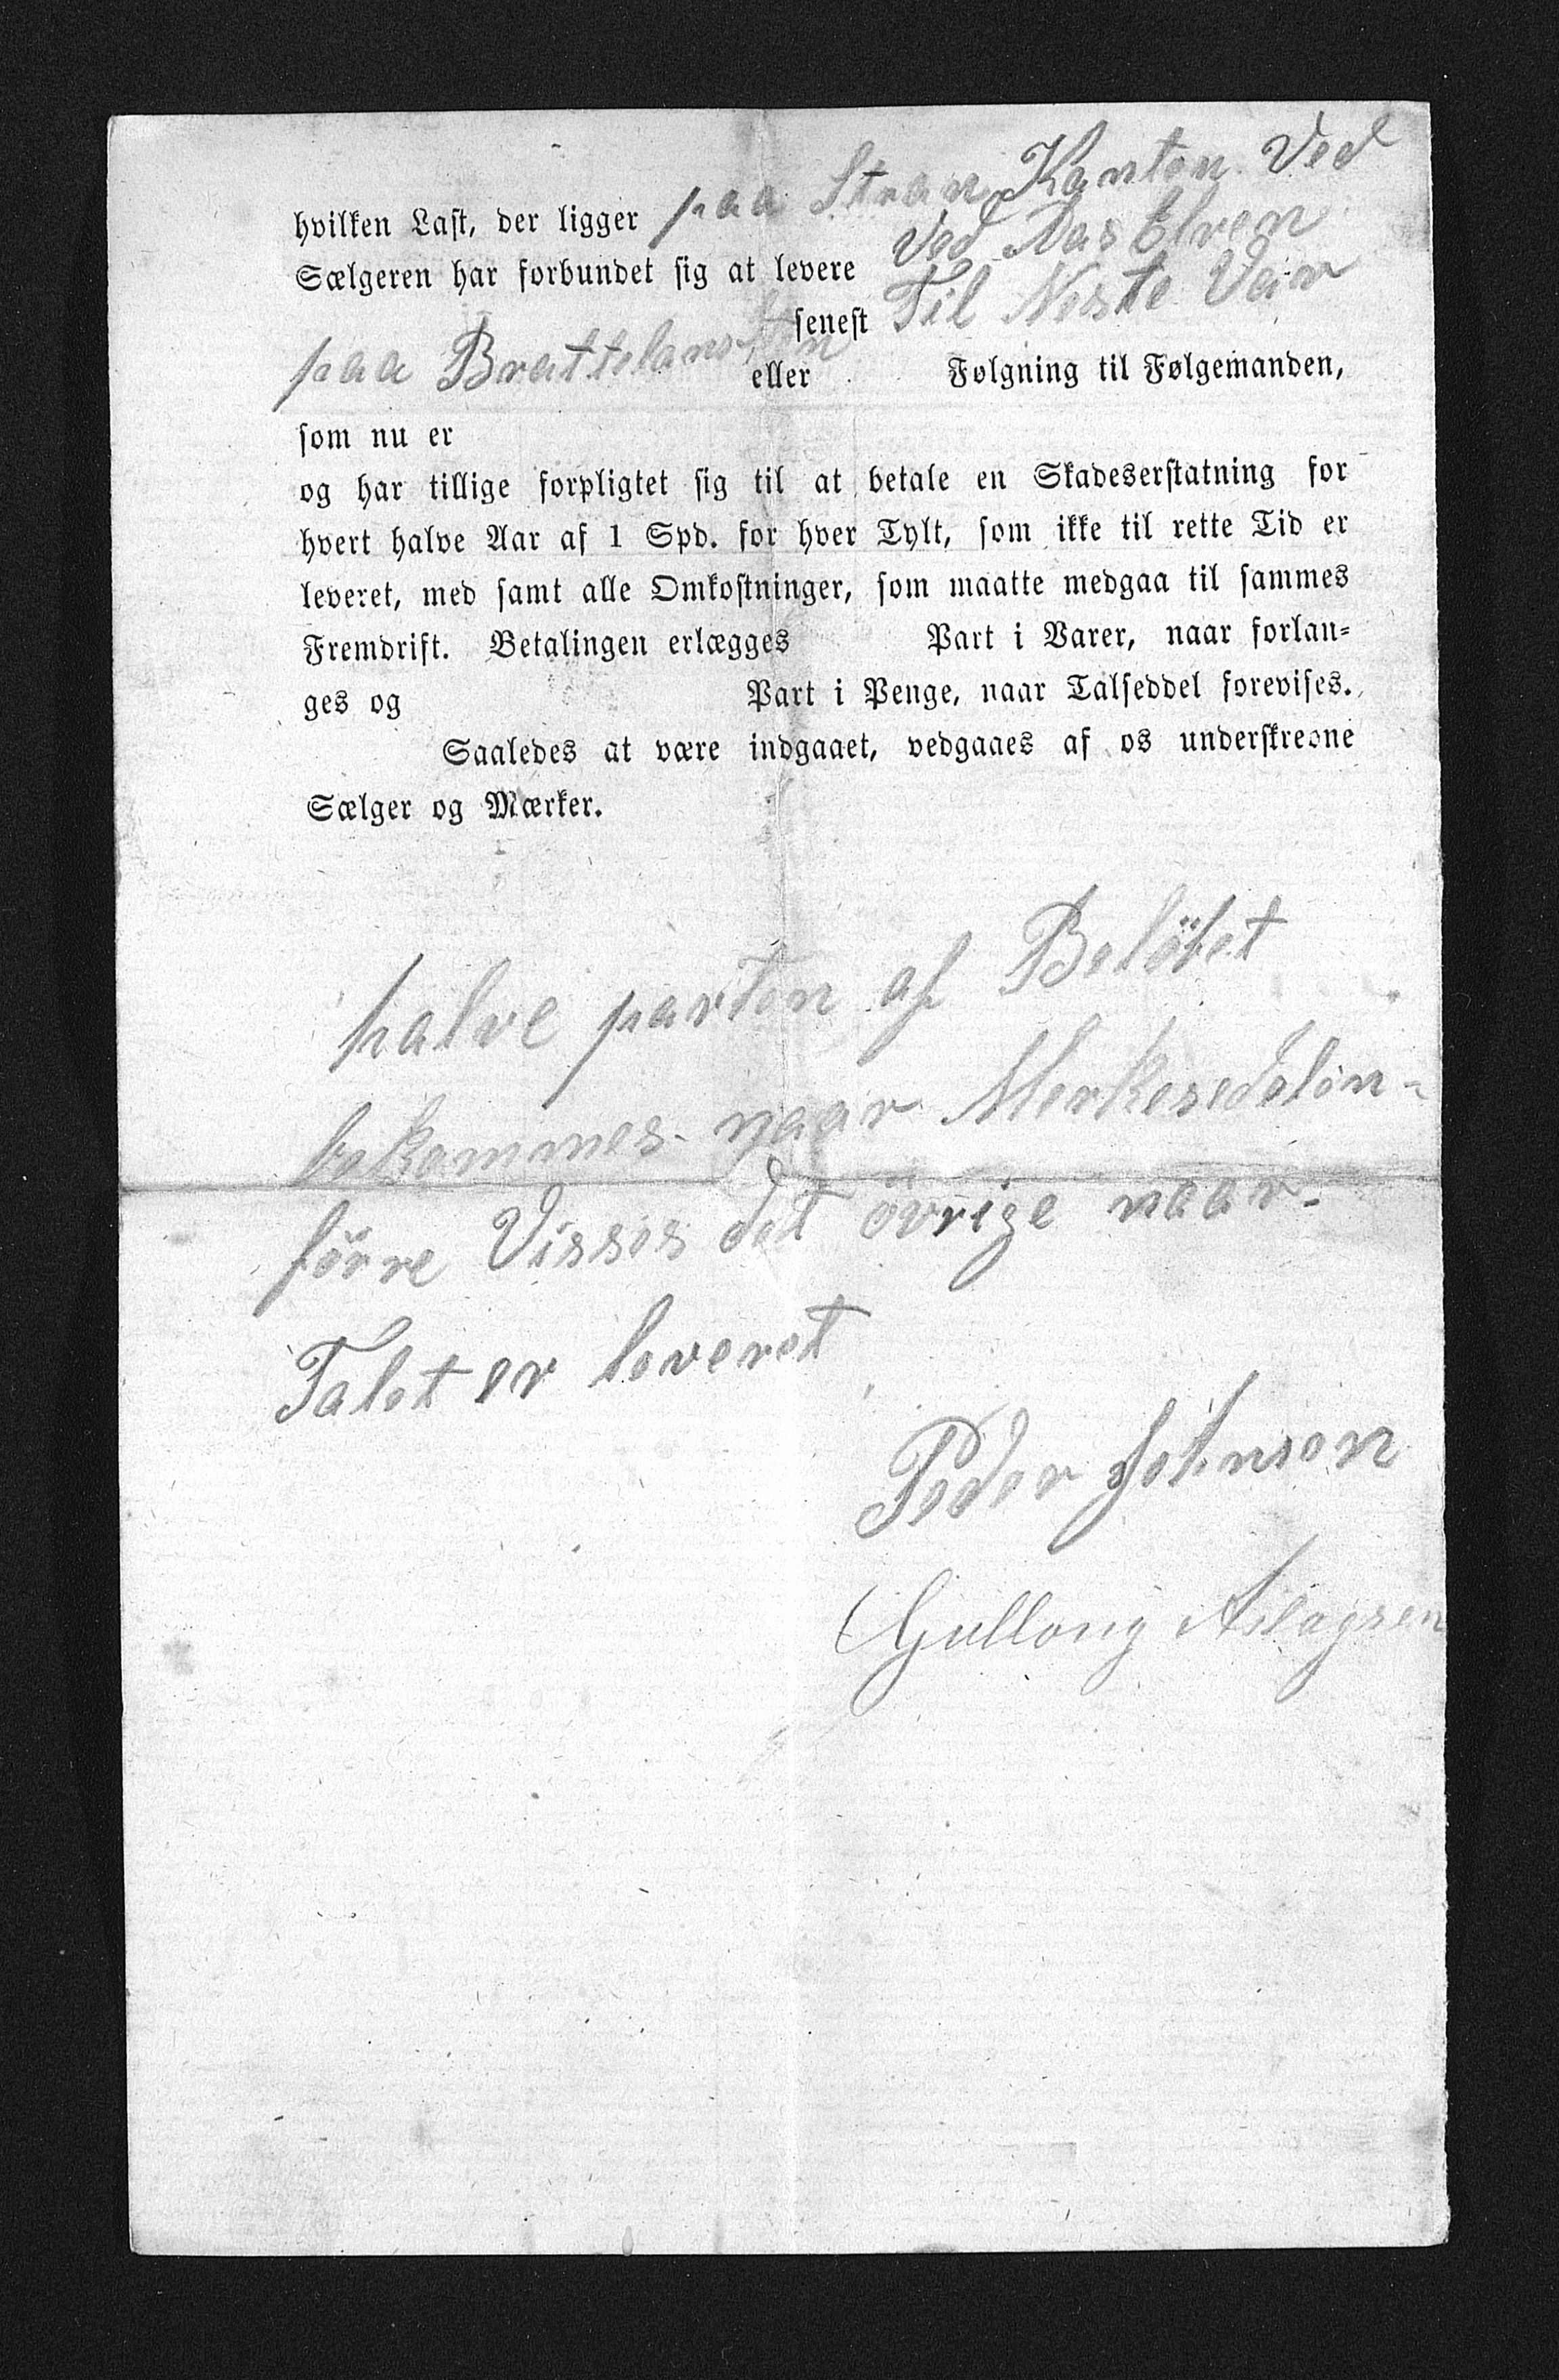 hvilken Last, der ligger paa Stran Kanten Ved
Sælgeren har forbundet sig at levere Ved Aas Elven
senest Til Neste Vaar
paa Brattelans
eller Følgning til Følgemanden,
som nu er
og har tillige forpligtet sig til at betale en Skadeserstatning for
hvert halve Aar af 1 Spd. for hver Tylt, som ikke til rette Tid er
leveret, med samt alle Omkostninger, som maatte medgaa til sammes
Fremdrift. Betalingen erlægges Part i Varer, naar forlan-
ges og Part i Penge, naar Talseddel forevises.
Saaledes at være indgaaet, vedgaaes af os underskrevne
Sælger og Mærker.
halve parten af Belöbet
bekommes naar Merkesedelen-
förre Visses det övrige naar-
Talet er leveret
Peder Johnson
Gullong Aslagsen